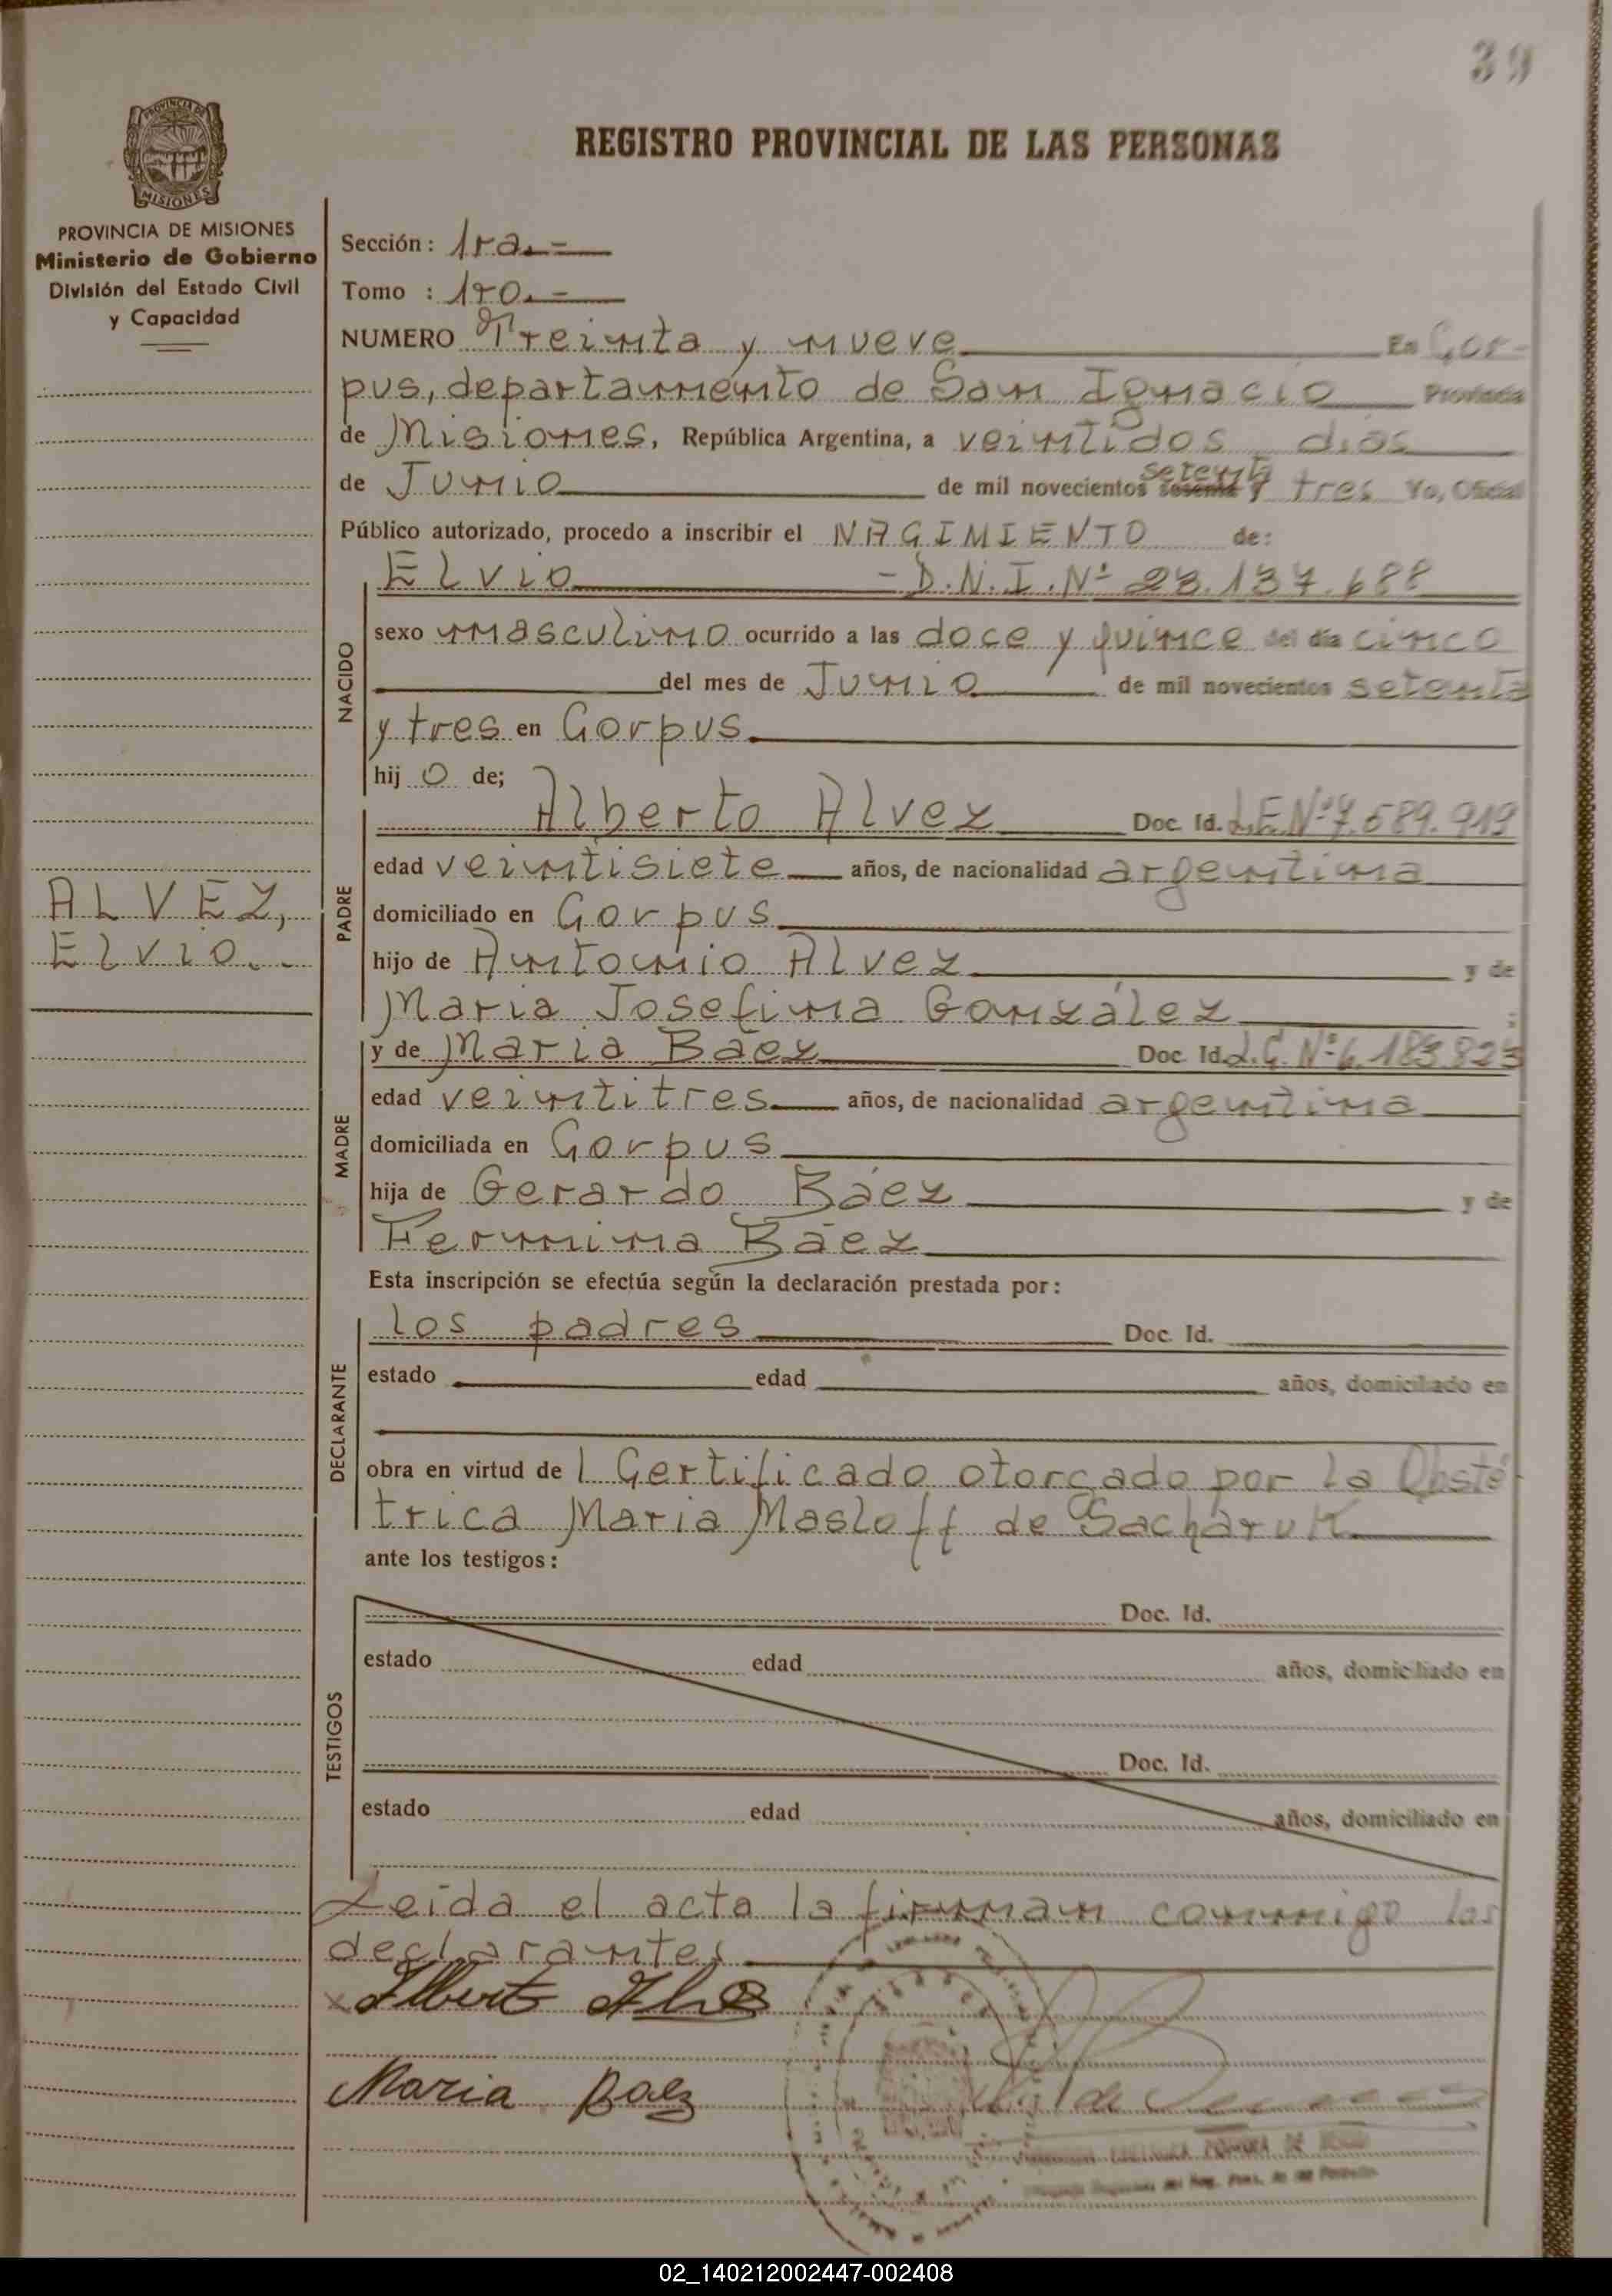 39
REGISTRO PROVINCIAL DE LAS PERSONAS
PROVINCIA DE MISIONES
PROVINCIA DE MISIONES
Ministerio de Gobierno
División del Estado Civil
y Capacidad
Sección: 1ra.-
Tomo : 1ro.-
NUMERO Treinta y nueve En Cor-
pus, departamento de San Ignacio Provincia
de Misiones, República Argentina, a veintidos dias
de Junio de mil novecientos sesenta setenta y tres Yo, Oficial
Público autorizado, procedo a inscribir el NACIMIENTO de:
NACIDO
Elvio - D.N.I. Nº 23.137.688
sexo masculino ocurrido a las doce y quince del día cinco
del mes de Junio de mil novecientos setenta
y tres en Corpus.
hij o de;
PADRE
Alberto Alvez Doc. Id. L.E.Nº7.589.919
edad veintisiete años, de nacionalidad argentina
domiciliado en Corpus
hijo de Antonio Alvez y de
Maria Josefina González :
ALVEZ,
Elvio.-
MADRE
y de Maria Báez Doc. Id. L.C. Nº6.183.823
edad veintitres años, de nacionalidad argentina
domiciliada en Corpus
hija de Gerardo Báez y de
Fermina Báez
Esta inscripción se efectúa según la declaración prestada por:
DECLARANTE
los padres Doc. Id.
estado edad años, domiciliado en
obra en virtud de l Certificado otorgado por la Obsté-
trica Maria Masloff de Sacharuk.
ante los testigos:
TESTIGOS
Doc. Id.
estado edad años, domiciliado en
Doc. Id.
estado edad años, domiciliado en
Leida el acta la firman conmigo los
declarantes
x Alberto Alvez
Maria Baez
02_140212002447-002408